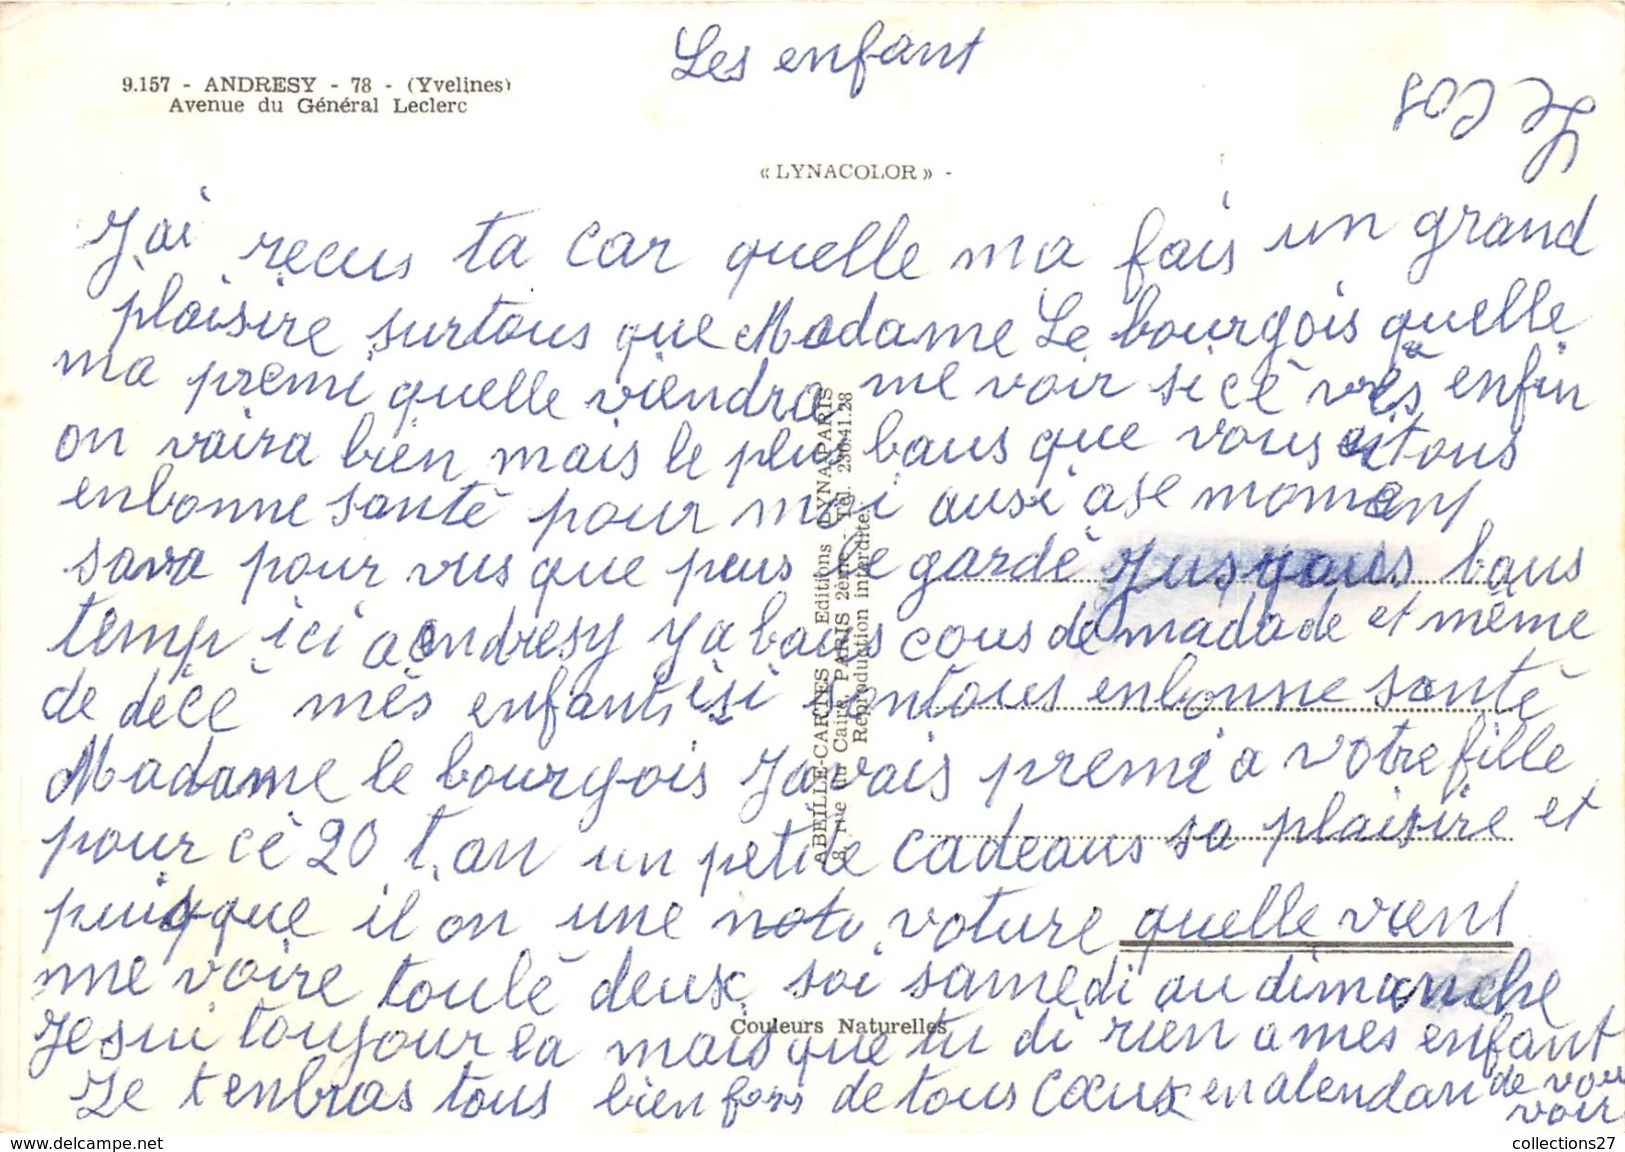 Les enfant
9.157 - ANDRESY - 78 - (Yvelines)
Avenue du Général Leclerc
« LYNACOLOR » -
J'ai recus ta car quelle ma fais un grand
plaisire surtous que Madame Le bourgois quelle
ma premi quelle viendra me voir si cè vrès enfin
on vaira bien mais le plus baus que vous aitous
enbonne santè pour moi ausi a se moment
sava pour vus que peus le gardè Jusqaus baus
temp ici a andresy y a baus cous de madade et mème
de dècè mès enfant isi sontous enbonne santè
Madame le bourgois Javais premi a votre fille
pour cè 20 t.an un petite cadeaus sa plaisire et
puisque il on une voture quelle viens
me voire toulè deux soi samedi ou dimanche
Je sui toujour la mais que tu di rien a mes enfant
Je t enbras tous bien fors de tous cœux en atendan de vou
voir
ABEILLE-CARTES Editions LYNA-PARIS
8, rue du Caire, PARIS 2ème Tél. 236.41.28
Reproduction interdite.
Couleurs Naturelles
collections27